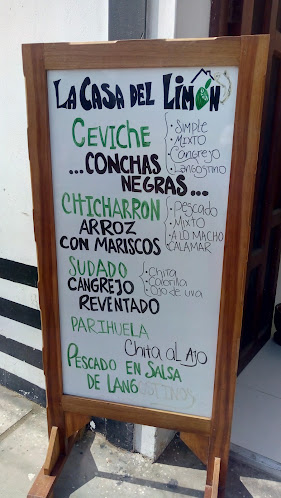 LA CASA DEL LIMÓN
CEVICHE
• SIMPLE
• MIXTO
• Cangrejo
• Langostino
...CONCHAS
NEGRAS...
CHICHARRON
• Pescado
• Mixto
• A LO MACHO
• CALAMAR
ARROZ
CON MARISCOS
SUDADO
• Chita
• Cabrilla
• Ojo de uva
CANGREJO
REVENTADO
PARIHUELA
Chita al Ajo
PESCADO EN SALSA
DE LANGOSTINOS